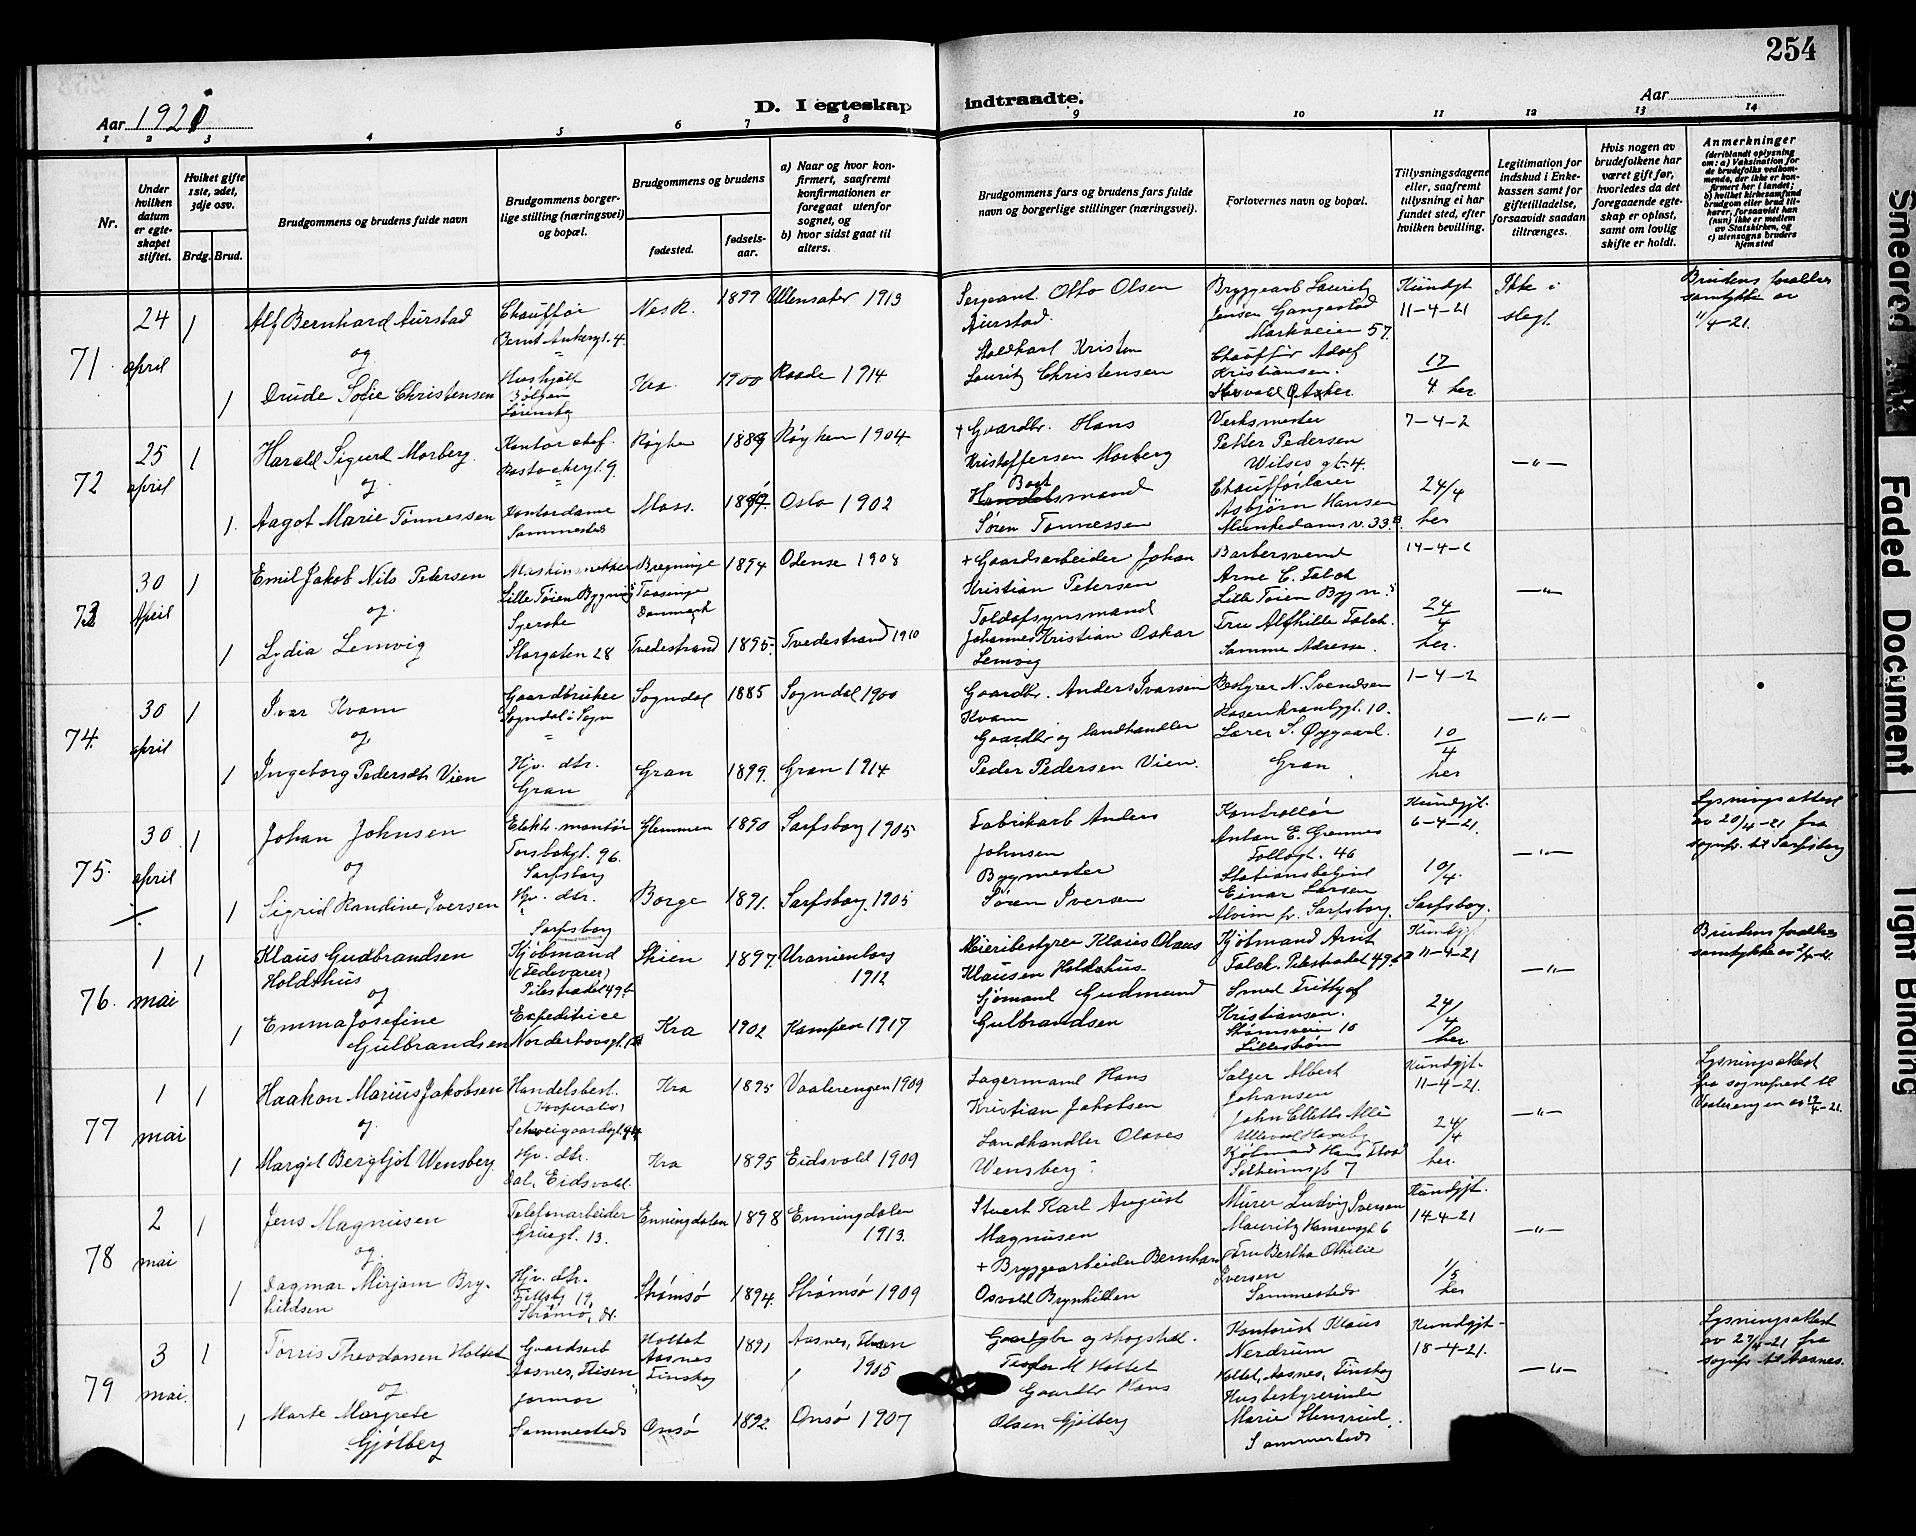 254
Aar 1921
D. I egteskap indtraadte.
Aar
1 2 3 4 5 6 7 8 9 10 11 12 13 14
Nr.
Under hvilken datum er egteskapet stiftet.
Hvilket gifte 1ste, 2det, 3dje osv.
Brdg. Brud.
Brudgommens og brudens fulde navn
Brudgommens borgerlige stilling (næringsvei) og bopæl.
Brudgommens og brudens
fødested.
fødselsaar.
a) Naar og hvor konfirmert, saafremt konfirmationen er foregaat utenfor sognet, og
b) hvor sidst gaat til alters.
Brudgommens fars og brudens fars fulde navn og borgerlige stillinger (næringsvei).
Forlovernes navn og bopæl.
Tillysningsdagene eller, saafremt tillysning ei har fundet sted, efter hvilken bevilling.
Legitimation for indskud i Enkekassen samt for giftetilladelse, forsaavidt saadan tiltrænges.
Hvis nogen av brudefolkene har været gift før, hvorledes da det foregaaende egteskap er opløst, samt om lovlig skifte er holdt.
Anmerkninger
(deriblandt oplysning om: a) Vaksination for de brudefolks vedkommende, der ikke er konfirmert her i landet; b) hvilket kirkesamfund brudgom eller brud tilhører, forsaavidt han (hun) ikke er medlem av Statskirken, og c) utensogns bruders hjemsted
71
24 april
1
Alf Bernhard Aurstad
og
1
Drude Sofie Christensen
Chauffør
Bernt Ankersgt. 4.
Hushjælp
Lørenskog
Nes R.
Kra.
1899
1900
Ullensaker 1913
Raade 1914
Sergeant Otto Olsen
Aurstad.
Staldkarl Kristen
Lauritz Christensen
Bryggearb Lauritz
Jensen Gangestad
Markveien 57.
Chauffør Adolf
Kristiansen.
Kundgt
11-4-21
17/4 her.
Ikke i
slegt.
Brudens forældres
samtykke av
11/4-21.
72
25 april
1
Harald Sigurd Morberg.
og
1.
Aagot Marie Tønnessen
Kontorchef.
Kontordame
Sammesteds
Røyken
Moss.
Røyken 1904
Oslo 1902
+ Gaardbr. Hans
Kristoffersen Morberg
Søren Tønnessen
Verksmester
Petter Pedersen
Wilses gt. 4.
Chaufførlærer
Asbjørn Hansen
Munkedamsv. 33 B
7-4-2
24/4
her
— " —
73
30 April
1
Emil Jakob Nils Petersen
og
1
Lydia Lemvig
Lille Tøien
Storgaten 28
Bregninge
Taasinge
Danmark
Tvedestrand
1894
1895.
Odense 1908
Tvedestrand 1910
+ Gaardsarbeider Johan
Kristian Petersen
Toldopsynsmand
Johannes Kristian Oskar
Lemvig
Barbersvend
Arne C. Falck
Lille Tøien
Fru Alfhilde Falck.
Samme Adresse.
14-4-2
24/4
her.
— " —
74.
30 april
1
Ivar Kvam
og
1
Ingeborg Pedersdtr Vien
Gaardbruker
Sogndal i Sogn
Hjv. dtr.
Gran
Sogndal
Gran
1885
1899.
Sogndal 1900
Gran 1914
Gaardbr. Anders Ivarsen
Kvam
Gaardbr og landhandler
Peder Pedersen Vien.
Bestyrer N. Svendsen
Rosenkrantzgt. 10.
Lærer S. Øygaard.
Gran
1-4-2
10/4
her
— " —
75.
30 april
1
Johan Johnsen
og
1
Sigrid Randine Iversen
Elektr. montør
Torsbekgt. 96.
Sarpsborg
Hjv. dtr.
Sarpsborg
Glemmen
Borge
1890
1891.
Sarpsborg 1905
Sarpsborg 1905
Fabrikarb Anders
Johnsen
Bygmester
Søren Iversen
Kontrollør
Anton E. Grønnes
Tollbgt. 46
Stationsbetjent
Einar Larsen
Alvim pr. Sarpsborg.
Kundgjt.
6-4-21.
10/4.
Sarpsborg.
— " —
Lysningsattest
av 20/4-21 fra
sognepr. til Sarpsborg
76.
1 mai
1
Klaus Gudbrandsen
Holdthus
og
1
Emma Josefine
Gulbrandsen
Kjøbmand
(Fedevarer)
Pilestrædet 49 b
Expeditrice
Skien
Kra
1897.
1902
Uranienborg
1912
Kampen 1917
Meieribestyrer Klaus Olaus
Klausen Holdthus
Sjømand Gudmund
Gulbrandsen
Kjøbmand Arnt
Falck. Pilestrædet 49 b
Smed Fritjof
Kristiansen.
Strømsveien 10
Lillestrøm
Kundgjt
11-4-21
24/4
her.
— " —
Brudens forældres
samtykke av 2/4-21.
77
1 mai
1
Haakon Marius Jakobsen
og.
1
Margit Bergljot Wensberg
Handelsbest.
(Kooperativ)
Hjv. dtr.
Dal, Eidsvold.
Kra
Kra
1895
1895
Vaalerengen 1909
Eidsvold 1909
Lagermand Hans
Kristian Jakobsen
Landhandler Olaves
Wensberg.
Sælger Albert
Johansen
John Colletts Alle
Kjøbmand Hans
Solheimsgt 7
Kundgjt.
11-4-21.
24/4
her.
— " —
Lysningsattest
fra sogneprest til
Vaalerengen av 19/4-21.
78
2 mai
1
Jens Magnusen
og
1
Dagmar Mirjam Bry-
hildsen
Telefonarbeider
Grüsgt. 13.
Hjv. dtr.
Strømsø, D.
Enningdalen
Strømsø
1898
1894.
Enningdalen
1913.
Strømsø 1909
Stuert Karl August
Magnusen
+ Bryggearbeider Bernhard
Osvald Brynhildsen
Murer Ludvig Iversen
Mauritz Hansensgt 6
Fru Bertha Othilie
Iversen
Sammesteds
Kundgjt.
14-4-21
1/5
her
— " —
79
3 mai.
1
Torris Theodorsen Holtet
og
1
Marte Margrete
Gjølberg
Gaardsarb
Jormor
Sammesteds
Holtet
Aasnes
Finskog
Onsø
1891
1892.
Aasnes,
1905
Onsø 1907
Gaardbr og skogseier.
M Holtet
Gaardbr Hans
Olsen Gjølberg
Kontorist Klaus
Nerdrum
Holtet, Aasnes, Finskog
Husbestyrerinde
Marie Stensrud.
Sammesteds
Kundgjt-
18-4-21.
— " —
Lysningsattest
av 27/4-21 fra
sognepr til Aasnes.
Smeared Ink
Faded Document
Tight Binding